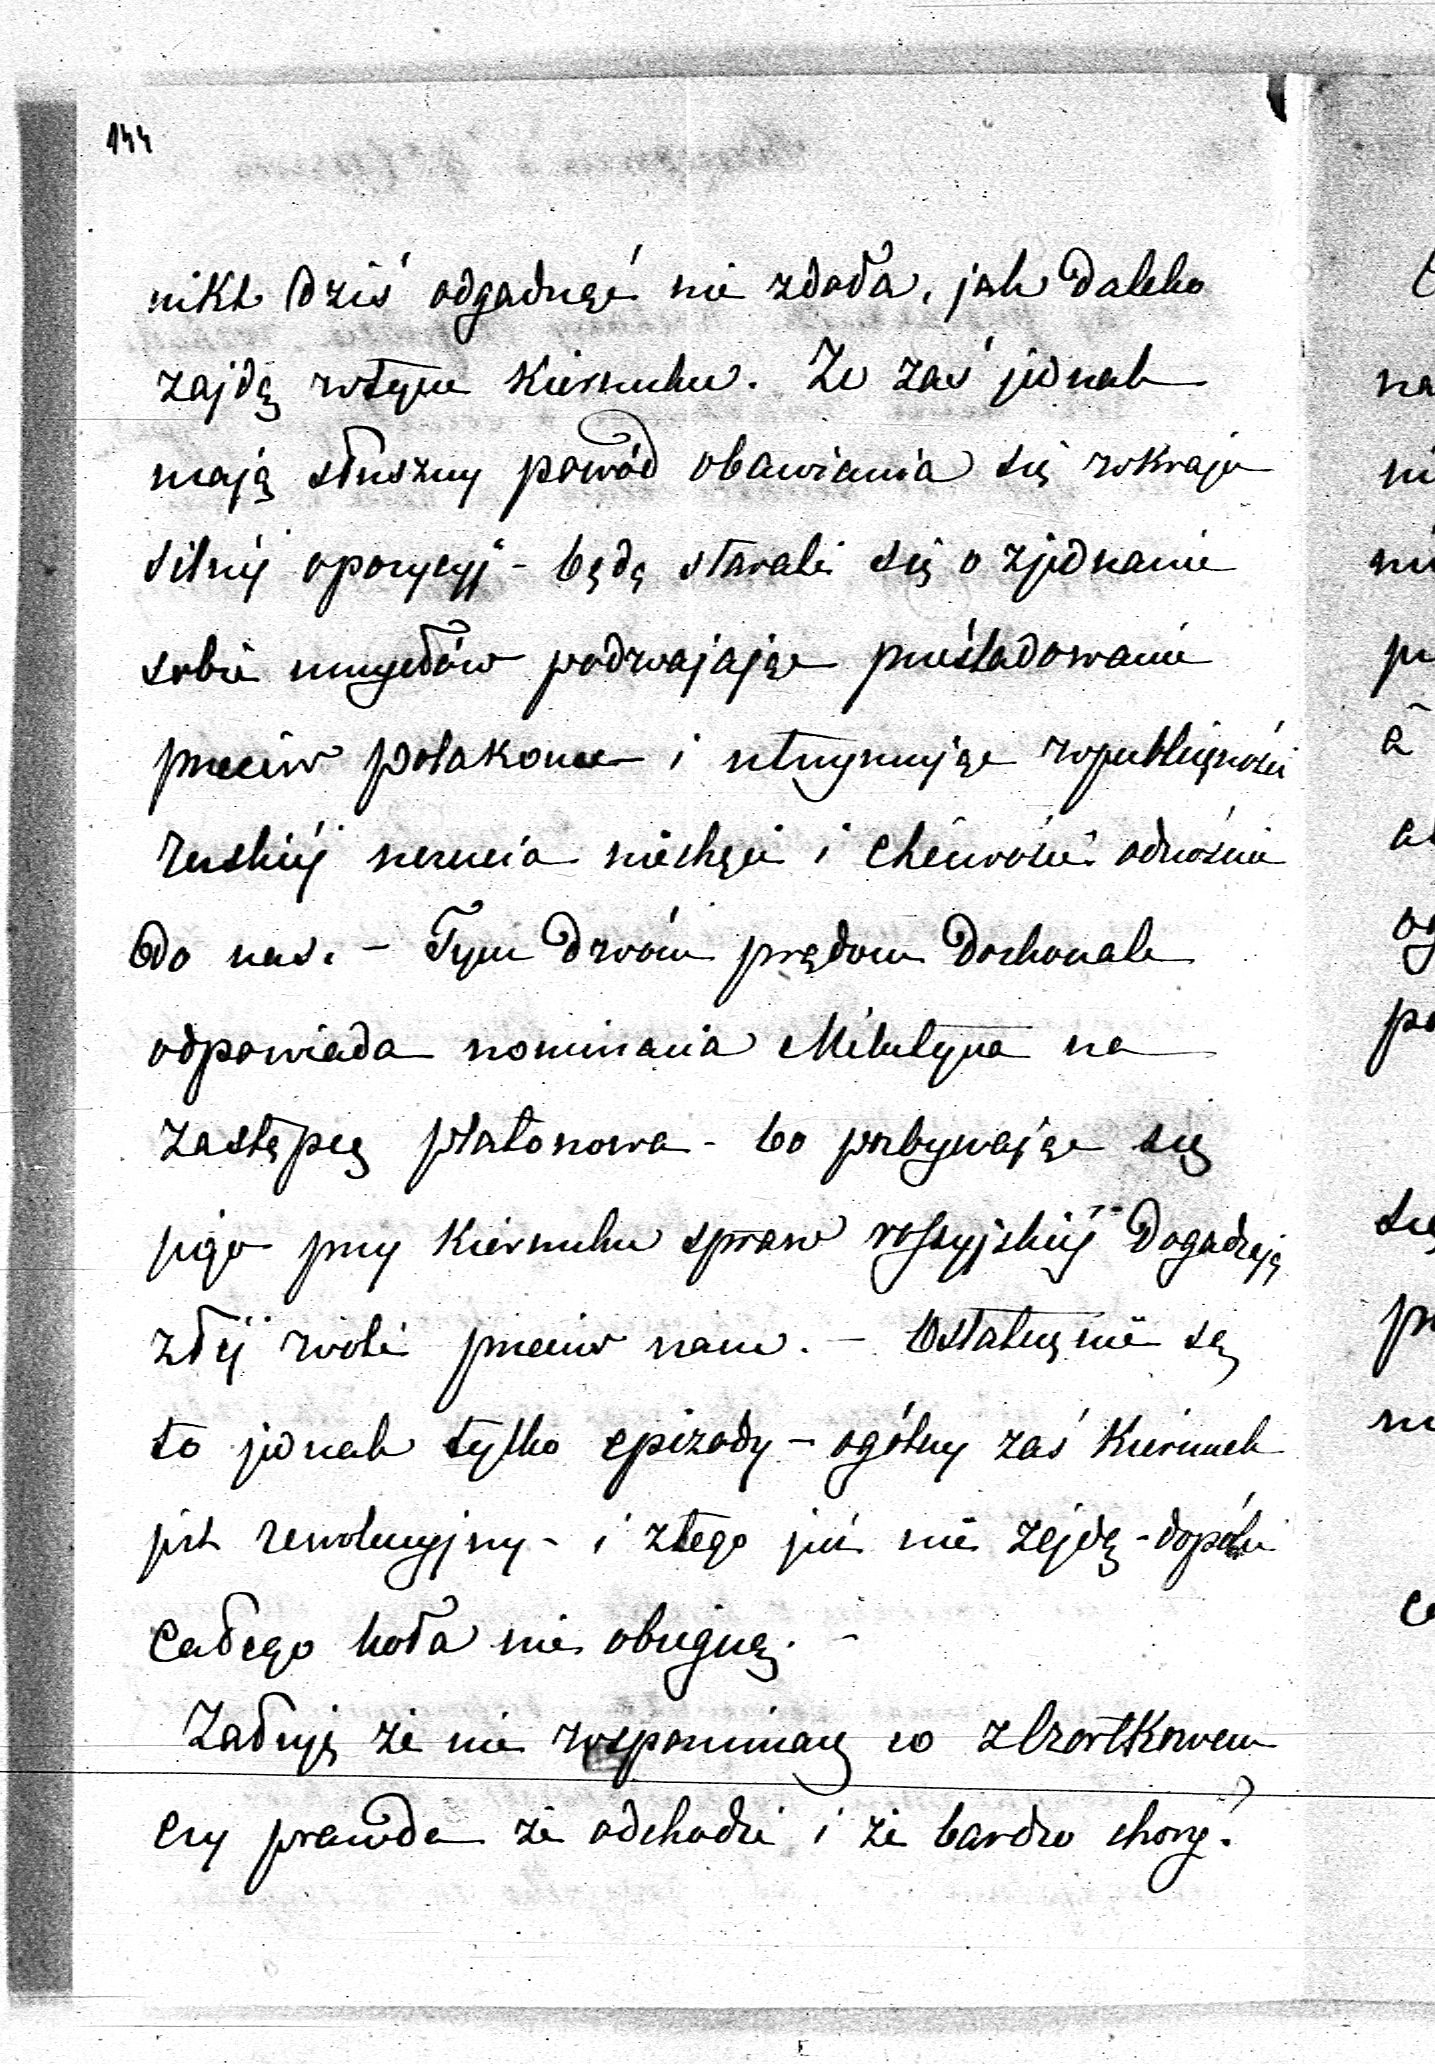 144
nikt dziś odgadnąć nie zdoła, jak daleko
zajdą wtym kierunku. Że zaś jednak
mają słuszny powód obawiania się wkraju
silnéj opozycyj - będą starali się o zjednanie
sobie umysłów podwajając prześladowanie
przeciw polakom i utrzymując wpubliczności
ruskiéj uczucia niechęci i chciwości odnośnie
do nas. - Tym dwóm prądom doskonale
odpowiada nominacia Milutyna na
zastępcę płatonowa - bo pozbywając się
jego przy kierunku spraw rossyjskiéj dogadzają
złéj woli przeciw nam. - Ostatecznie są
to jednak tylko epizody - ogólny zaś kierunek
jest rewolucyjny - i ztego już nie zejdą - dopóki
całego koła nie obiegną. -
Żałuję że nie wspominasz o zCzortkowem
czy prawda że odchodzi i że bardzo chory?